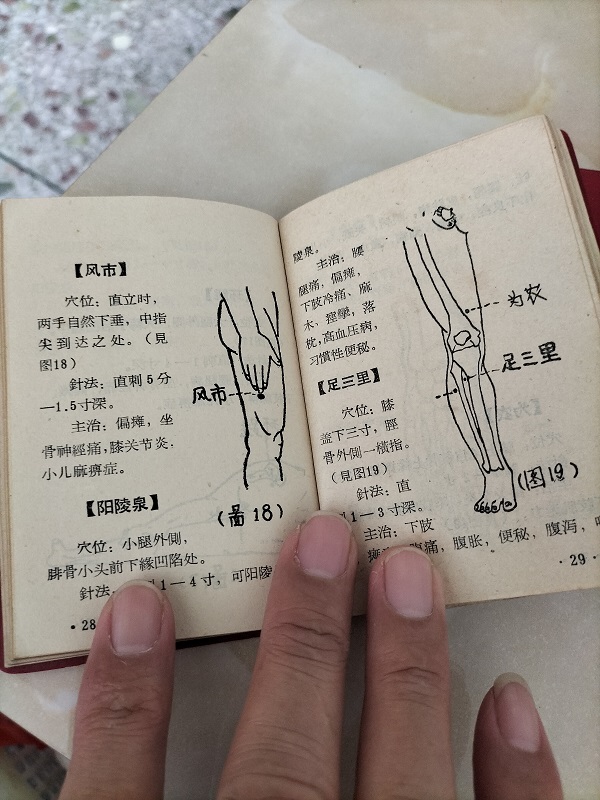 【风市】
穴位：直立时，
两手自然下垂，中指
尖到达之处。（見
图18）
針法：直刺5分
—1.5寸深。
主治：偏瘫，坐
骨神經痛，膝关节炎．
小儿麻痹症。
风市
（图18）
【阳陵泉】
穴位：小腿外側，
腓骨小头前下緣凹陷处。
針法：
1—4寸，可阳陵
·28
陵泉。
主治：腰
腿痛，偏瘫，
下肢冷痛、麻
木、痙攣，落
枕，高血压病，
习惯性便秘。
【足三里】
穴位：膝
盖下三寸，脛
骨外側一橫指。
（見图19）
針法：直
1—3寸深。
主治：下肢
腹痛，腹胀，便秘，腹泻，
·29·
足三里
（图19）